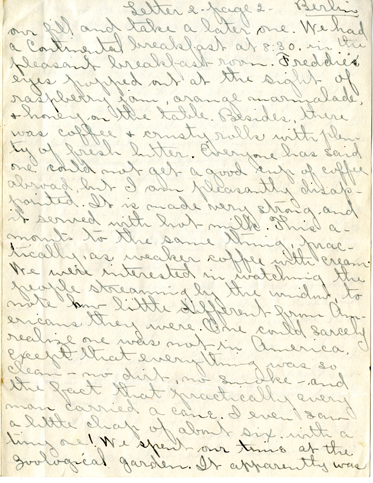 Letter 2 - page 2 - Berlin
our fill and take a later one. We had
a continental breakfast at 8:30 in the
pleasant breakfast room. Freddie's
eyes popped out at the sight of
raspberry jam, orange marmalade,
& honey on the table. Besides, there
was coffee & crusty rolls with plen-
ty of fresh butter. Everyone has said
one could not get a good cup of coffee
abroad but I am pleasantly disap-
pointed. It is made very strong and
is served with hot milk. This a-
mounts to the same thing, prac-
tically, as weaker coffee with cream.
We were interested in watching the
people streaming by the window, to
note how little different from Am-
ericans they were. One could sarcely
realize one was not in America,
except that everything was so
clean - no dirt, no smoke - and
the fact that practically every
man carried a cane. I even saw
a little chap of about six with a
tiny one! We spent our time at the
zoological garden. It apparently was